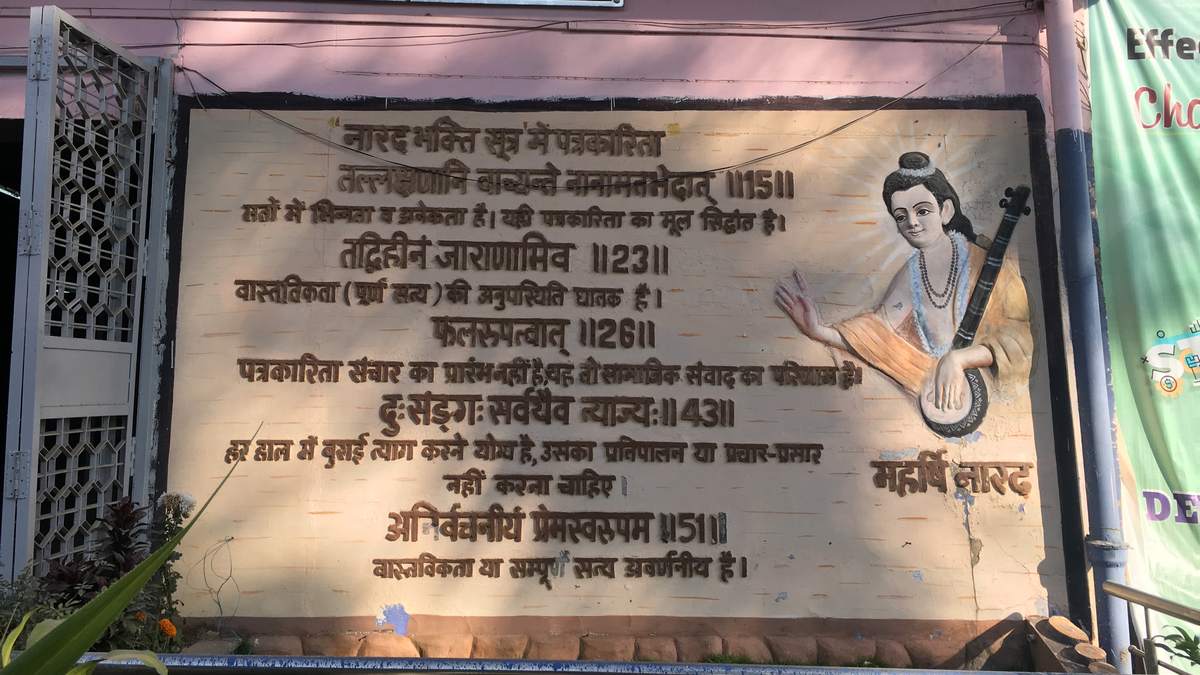 "नारद भक्ति सूत्र' में पत्रकारिता
तल्लक्षणानि वाच्यन्ते नानामतभेदात् ॥15॥
मतों में भिन्नता व अनेकता है। यही पत्रकारिता का मूल सिद्धांत है।
तद्विहीनं जाराणामिव ॥23॥
वास्तविकता (पूर्ण सत्य) की अनुपस्थिति घातक है।
फलरुपत्वात् ॥26॥
पत्रकारिता संचार का प्रारंभ नहीं है, यह तो सामाजिक संवाद का परिणाम है।
दुःसङ्गः सर्वथैव त्याज्यः॥43॥
हर हाल में बुराई त्याग करने योग्य है, उसका प्रतिपालन या प्रचार-प्रसार
नहीं करना चाहिए।
अनिर्वचनीयं प्रेमस्वरुपम ॥51॥
वास्तविकता या सम्पूर्ण सत्य अवर्णनीय है।
महर्षि नारद
Effe
Cha
DE